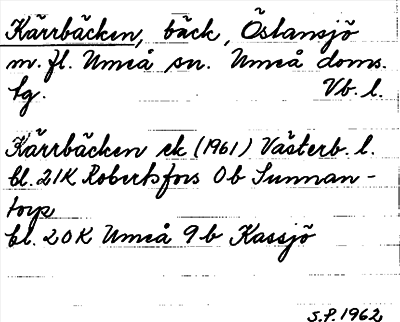 Kärrbäcken, bäck, Östansjö
m.fl. Umeå sn. Umeå doms.
tg. Vb. l.
Kärrbäcken ek (1961) Västerb. l.
bl. 21K Robertsfors 0b Sunnan-
torp
bl. 20K Umeå 9b Kassjö
S.P. 1962